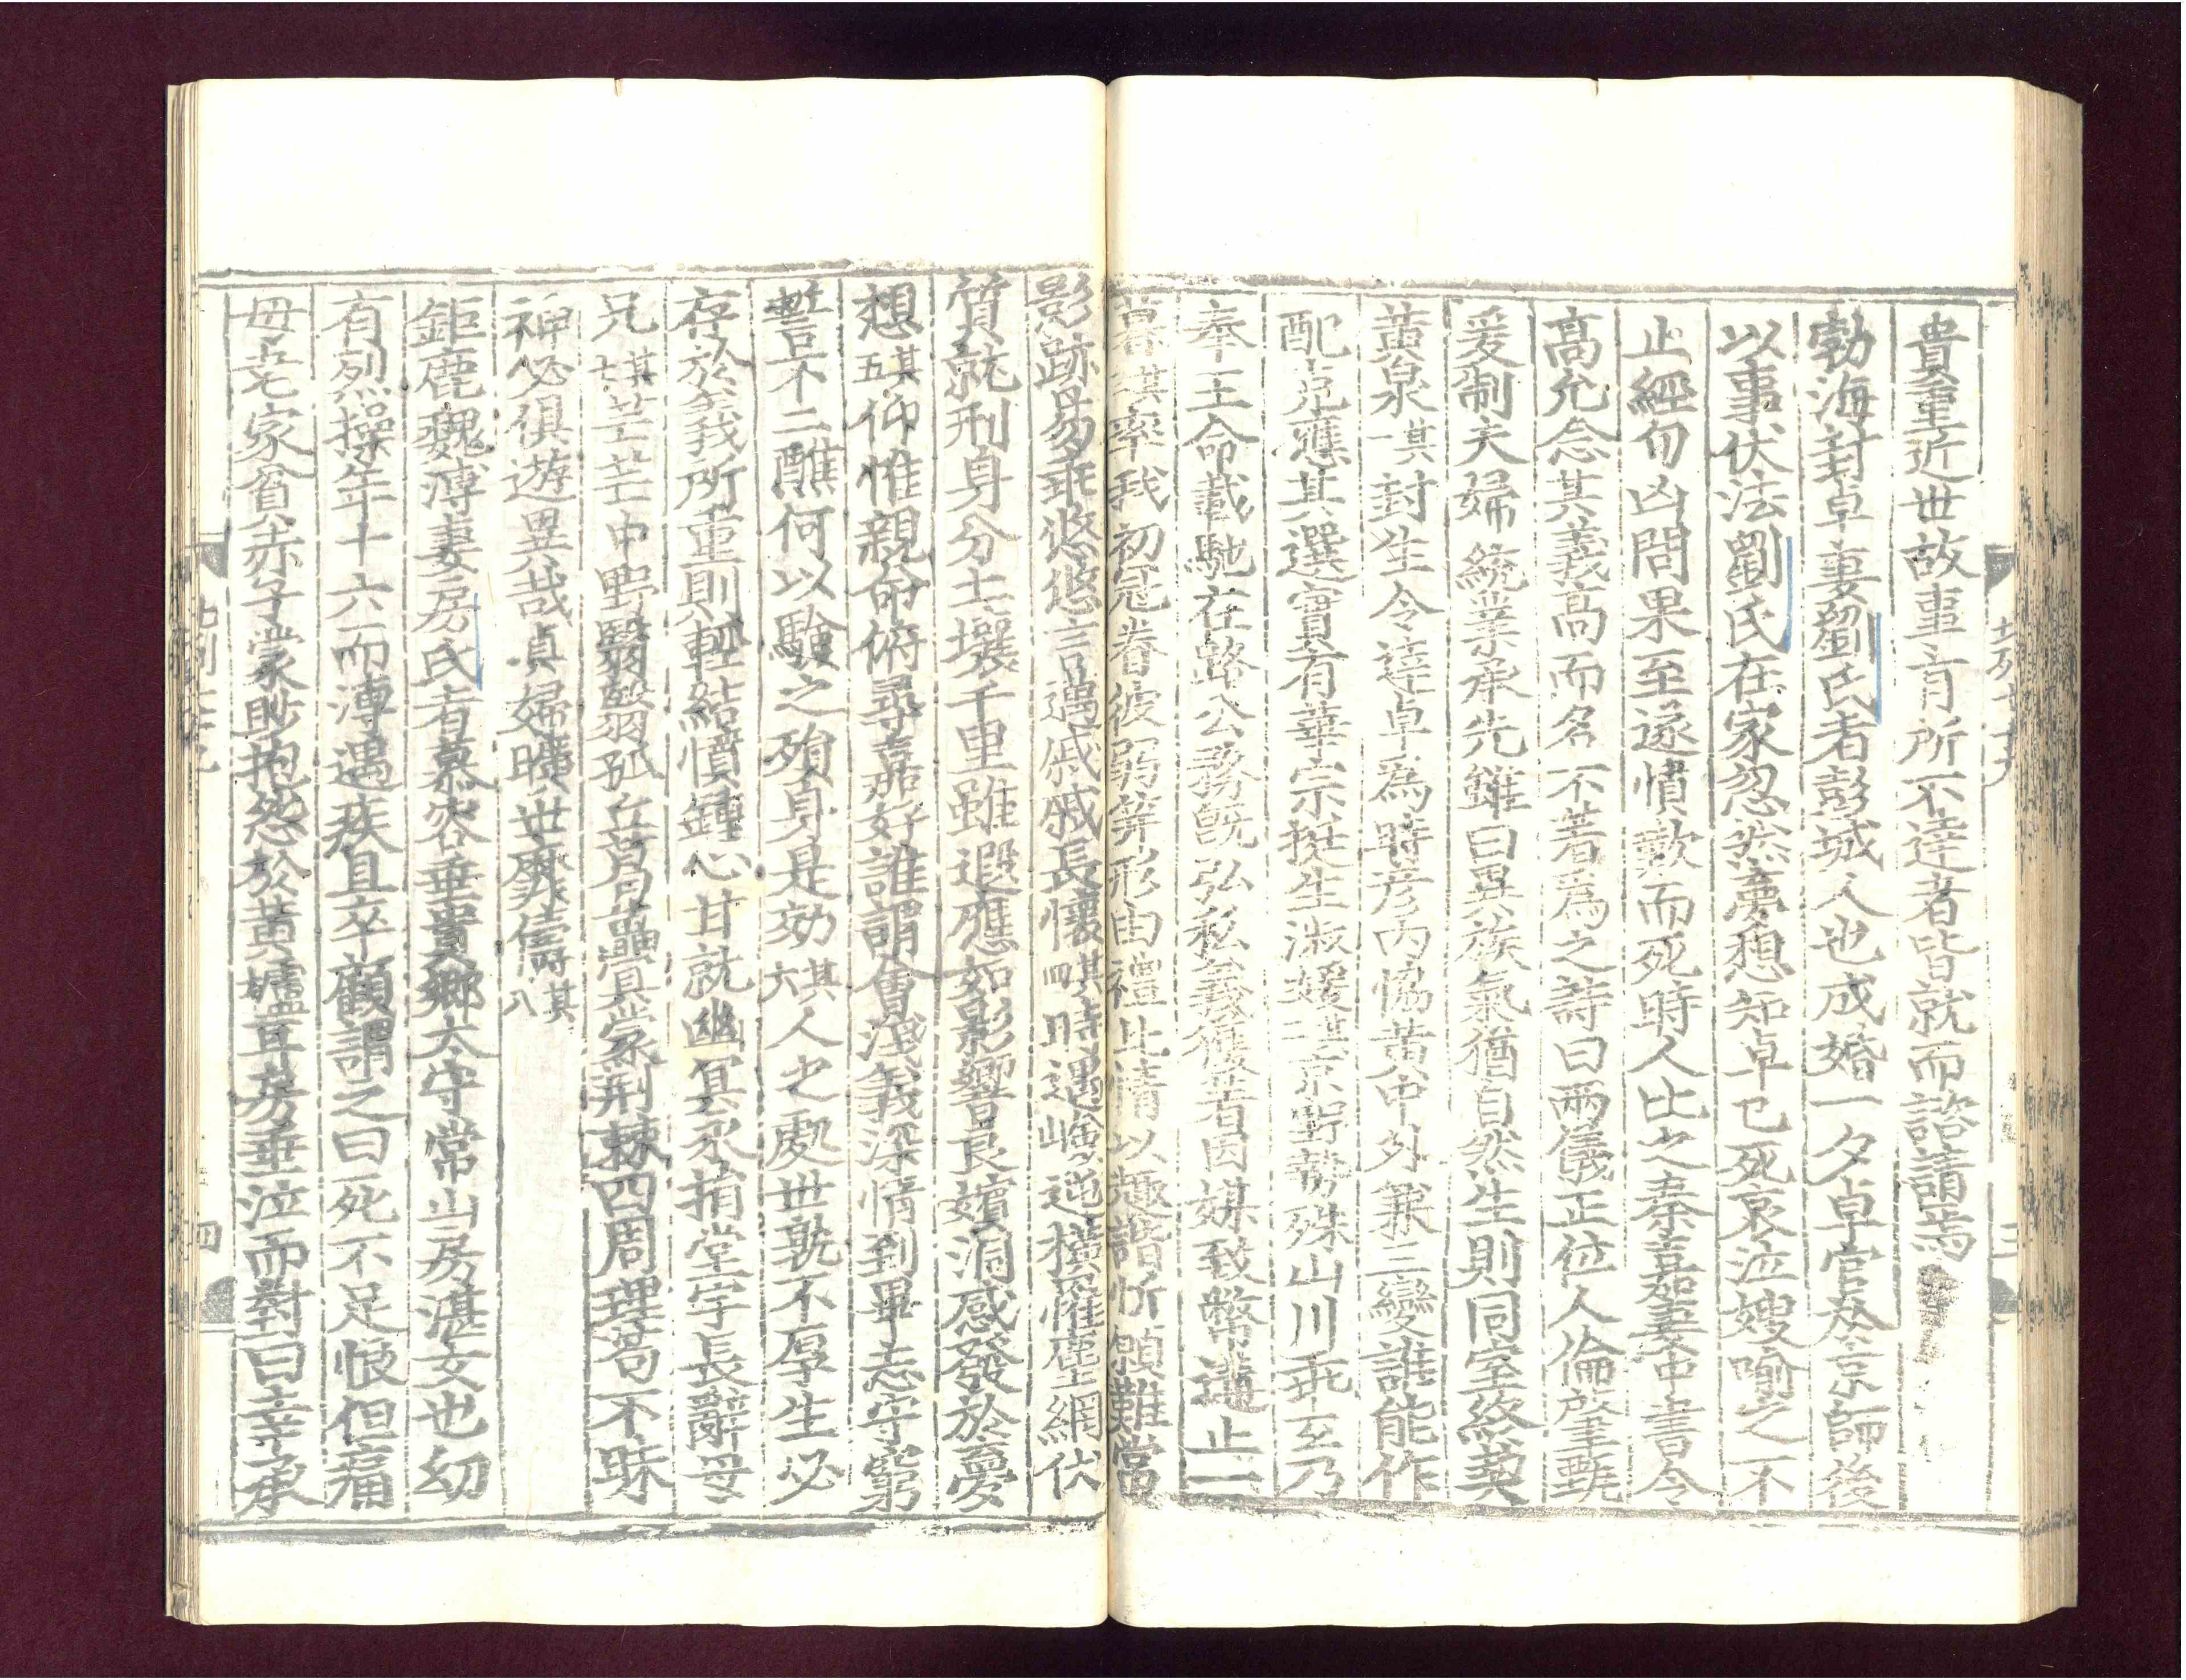 貴重近世故事有所不達者皆就而諮請焉
勃海封卓妻劉氏者彭城人也成婚一夕卓官於京師後
以事伏法劉氏在家忽然夢想知卓已死哀泣嫂喻之不
止經旬凶問果至遂憤歎而死時人比之秦嘉妻中書令
高允念其義高而名不著為之詩曰兩儀正位人倫肇甄
爰制夫婦統業承先雖曰異族氣猶自然生則同室終契
黃泉其一封生令達卓為時彦內協黃中外兼三變誰能作
配克應其選實有華宗挺生淑媛其二京野勢殊山川乖互乃
奉王命載馳在路公務旣弘私義獲著因媒致幣遘止一
暮其三率我初冠眷彼弱笄形由禮比情以趣諧忻願難常
影跡易乖悠悠言邁戚戚長懷其四時遇嶮迍橫罹塵網伏
質就刑身分土壤千里雖遐應如影響良嬪洞感發於夢
想其五仰惟親命俯尋嘉好誰謂會淺義深情到畢志守窮
誓不二醮何以驗之殞身是効其六人之處世孰不厚生必
存於義所重則輕結憤鍾心甘就幽冥永捐堂宇長辭母
兄其七茫茫中野翳翳孤丘葛虆冥蒙荆棘四周理苟不昧
神必俱遊異哉貞婦曠世靡儔其八
鉅鹿魏溥妻房氏者慕容垂貴鄉太守常山房湛女也幼
有烈操年十六而溥遇疾且卒顧謂之曰死不足恨但痛
母老家貧赤子蒙眇抱怨於黃壚耳房垂泣而對曰幸承
四